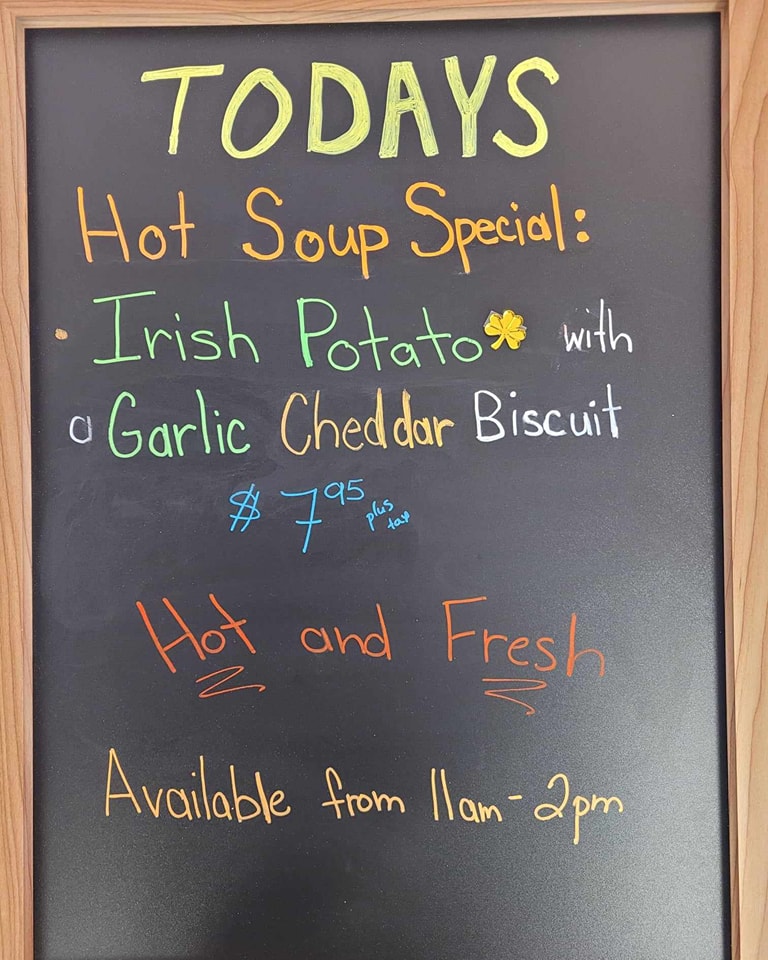 TODAYS
Hot Soup Special:
Irish Potato with
a Garlic Cheddar Biscuit
$ 7 95 plus tax
Hot and Fresh
Available from 11am - 2pm